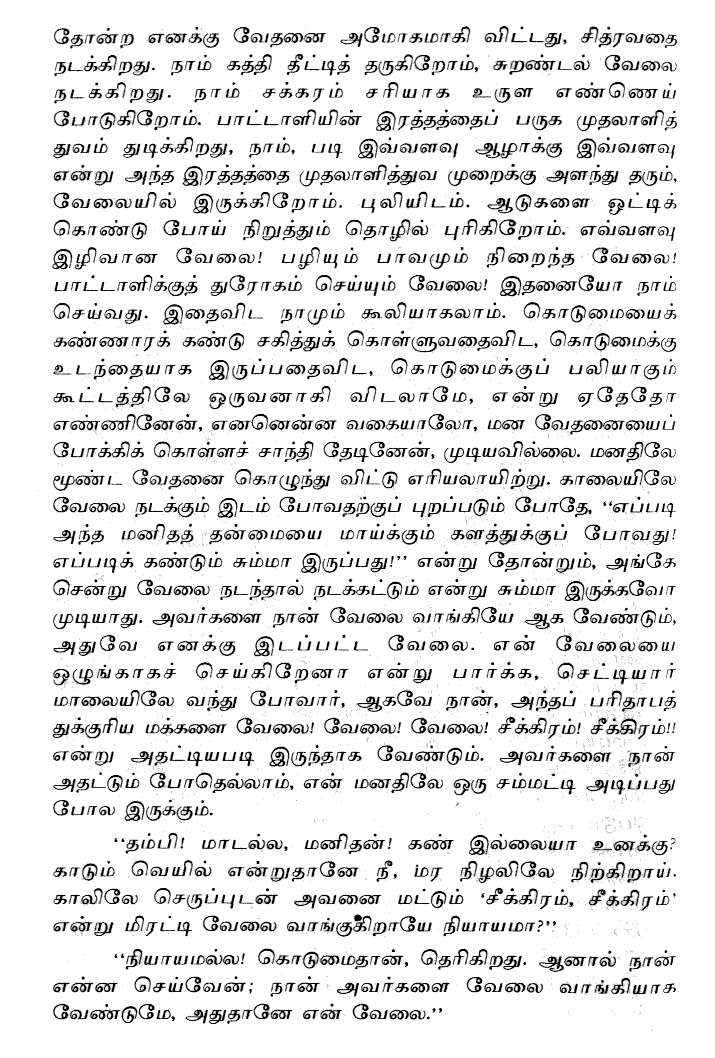 தோன்ற எனக்கு வேதனை அமோகமாகி விட்டது, சித்ரவதை
நடக்கிறது. நாம் கத்தி தீட்டித் தருகிறோம், சுறண்டல் வேலை
நடக்கிறது. நாம் சக்கரம் சரியாக உருள எண்ணெய்
போடுகிறோம். பாட்டாளியின் இரத்தத்தைப் பருக முதலாளித்
துவம் துடிக்கிறது, நாம், படி இவ்வளவு ஆழாக்கு இவ்வளவு
என்று அந்த இரத்தத்தை முதலாளித்துவ முறைக்கு அளந்து தரும்,
வேலையில் இருக்கிறோம். புலியிடம். ஆடுகளை ஓட்டிக்
கொண்டு போய் நிறுத்தும் தொழில் புரிகிறோம். எவ்வளவு
இழிவான வேலை! பழியும் பாவமும் நிறைந்த வேலை!
பாட்டாளிக்குத் துரோகம் செய்யும் வேலை! இதனையோ நாம்
செய்வது. இதைவிட நாமும் கூலியாகலாம். கொடுமையைக்
கண்ணாரக் கண்டு சகித்துக் கொள்ளுவதைவிட, கொடுமைக்கு
உடந்தையாக இருப்பதைவிட, கொடுமைக்குப் பலியாகும்
கூட்டத்திலே ஒருவனாகி விடலாமே, என்று ஏதேதோ
எண்ணினேன், எனனென்ன வகையாலோ, மன வேதனையைப்
போக்கிக் கொள்ளச் சாந்தி தேடினேன், முடியவில்லை. மனதிலே
மூண்ட வேதனை கொழுந்து விட்டு எரியலாயிற்று. காலையிலே
வேலை நடக்கும் இடம் போவதற்குப் புறப்படும் போதே, “எப்படி
அந்த மனிதத் தன்மையை மாய்க்கும் களத்துக்குப் போவது!
எப்படிக் கண்டும் சும்மா இருப்பது!” என்று தோன்றும், அங்கே
சென்று வேலை நடந்தால் நடக்கட்டும் என்று சும்மா இருக்கவோ
முடியாது. அவர்களை நான் வேலை வாங்கியே ஆக வேண்டும்,
அதுவே எனக்கு இடப்பட்ட வேலை. என் வேலையை
ஒழுங்காகச் செய்கிறேனா என்று பார்க்க, செட்டியார்
மாலையிலே வந்து போவார், ஆகவே நான், அந்தப் பரிதாபத்
துக்குரிய மக்களை வேலை! வேலை! வேலை! சீக்கிரம்! சீக்கிரம்!!
என்று அதட்டியபடி இருந்தாக வேண்டும். அவர்களை நான்
அதட்டும் போதெல்லாம், என் மனதிலே ஒரு சம்மட்டி அடிப்பது
போல இருக்கும்.
“தம்பி! மாடல்ல, மனிதன்! கண் இல்லையா உனக்கு?
காடும் வெயில் என்றுதானே நீ, மர நிழலிலே நிற்கிறாய்.
காலிலே செருப்புடன் அவனை மட்டும் ‘சீக்கிரம், சீக்கிரம்’
என்று மிரட்டி வேலை வாங்குகிறாயே நியாயமா?”
“நியாயமல்ல! கொடுமைதான், தெரிகிறது. ஆனால் நான்
என்ன செய்வேன்; நான் அவர்களை வேலை வாங்கியாக
வேண்டுமே, அதுதானே என் வேலை.”